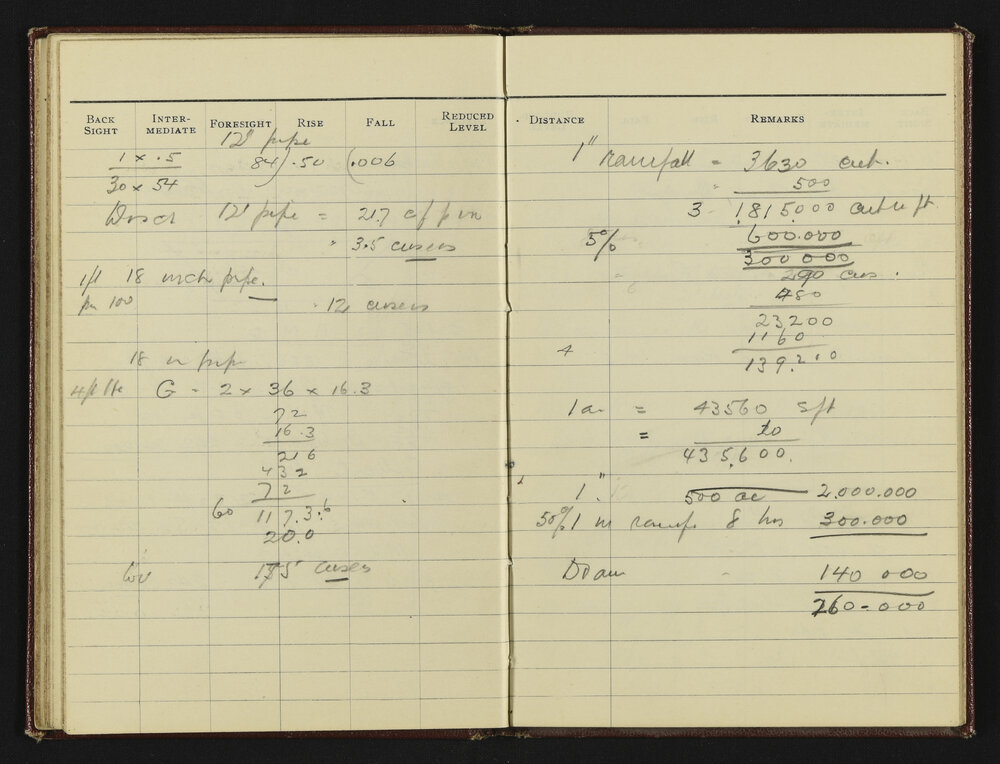 BACK SIGHT INTER-MEDIATE FORESIGHT RISE FALL REDUCED LEVEL
12" pipe
1 x .5 84) .50 (.006
30 x 54
12" pipe = 217 cf p m
" 3.5 cusecs
1ft 18 inch pipe.
per 100 12 cusecs
18 in pipe
G = 2 x 36 x 16.3
72
16.3
216
432
72
60 117.3.6
20.0
cusecs
DISTANCE REMARKS
1" rainfall = 3630 cub.
500
3 1,815,000 cubic ft
5% 600.000
300 000
290 cus.
480
23200
1160
4 139.200
1 a = 43560 sft
= 10
435,600.
1" 500 ac 2.000.000
50% 1 in rainf 8 hrs 300.000
Drain 140 000
260-000